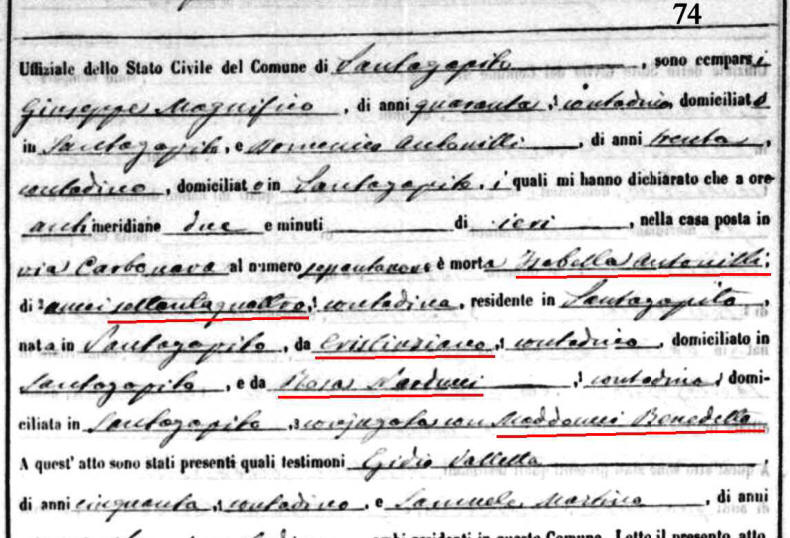 74
Uffiziale dello Stato Civile del Comune di Santagapito, sono comparsi
Giuseppe Magnifico, di anni quaranta, contadino domiciliato
in Santagapito, e Domenico Antonilli, di anni trenta,
contadino, domiciliato in Santagapito, i quali mi hanno dichiarato che a ore
anti meridiane due e minuti di ieri, nella casa posta in
via Carbonara al numero è morta Isabella Antonilli,
di anni settantaquattro, contadina, residente in Santagapito,
nata in Santagapito, da Cristinziano, contadino, domiciliato in
Santagapito, e da Rosa Narducci, contadina, domi-
ciliata in Santagapito, conjugata con Maddonni Benedetto
A quest' atto sono stati presenti quali testimoni Gidio Valletta
di anni cinquanta, contadino, e Samuele Martino, di anni